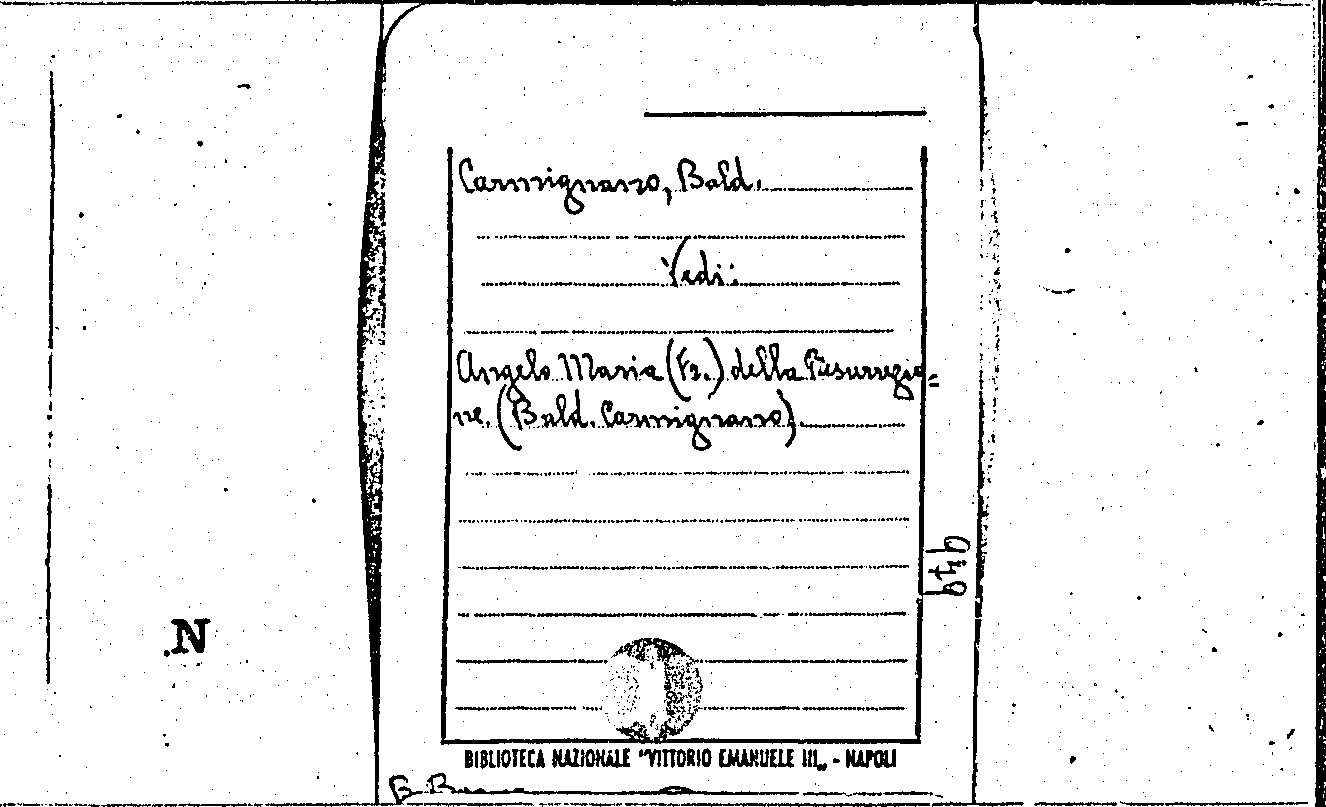 Carmignano, Bald.
Vedi:
Angelo Maria (Fr.) della Resurrezio=
ne. (Bald. Carmignano).
.N
BIBLIOTECA NAZIONALE "VITTORIO EMANUELE III„ - NAPOLI